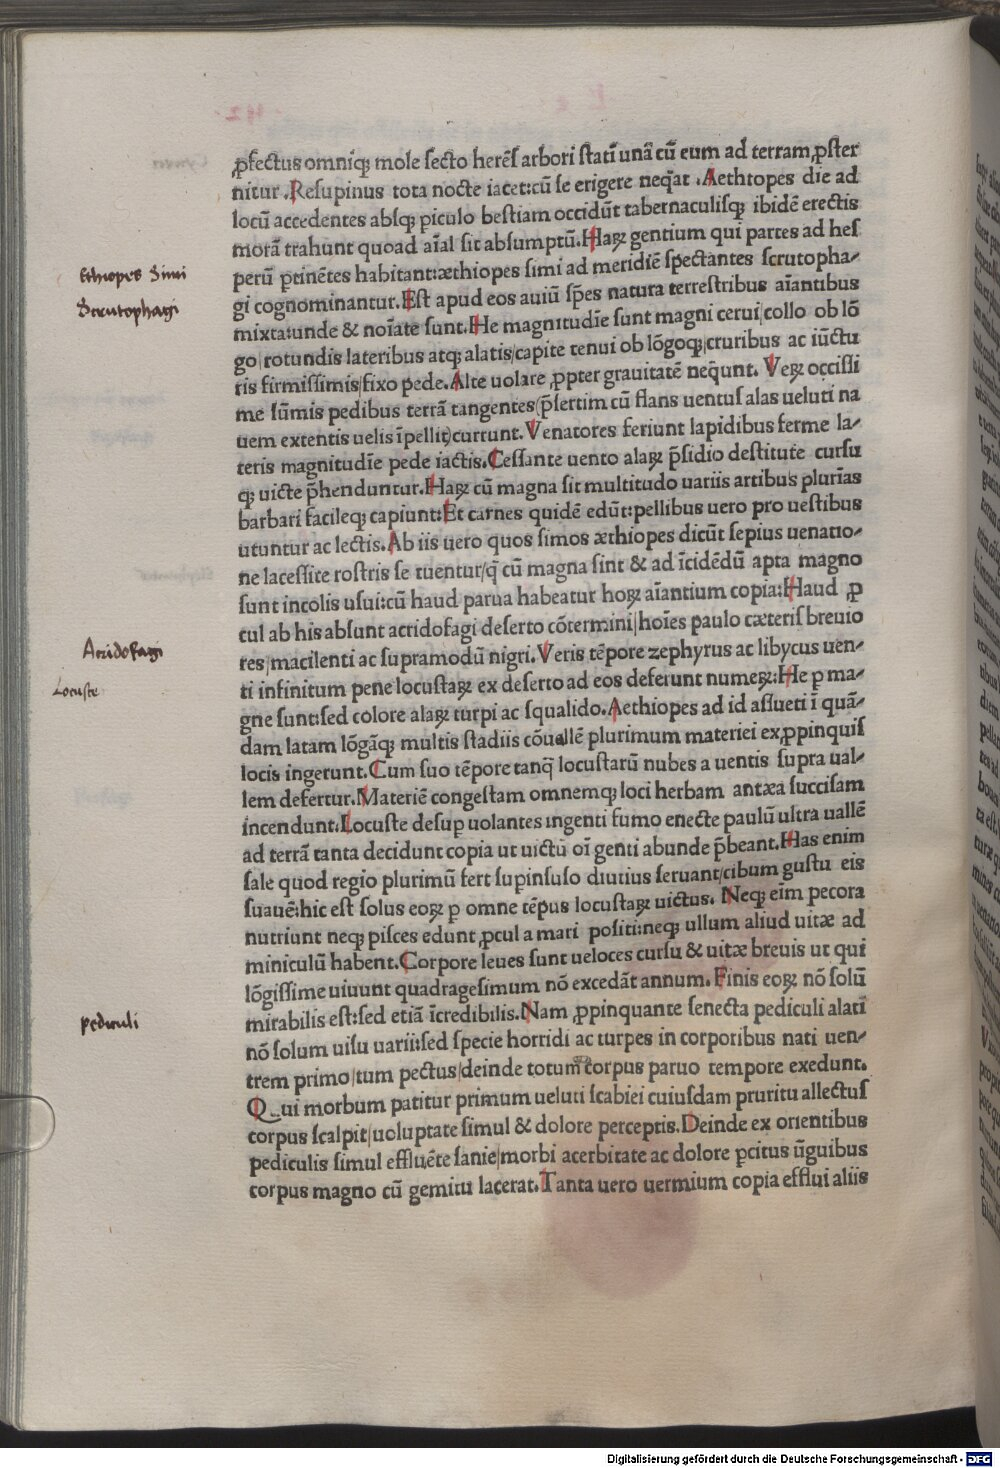 ꝓfectus omniqꝫ mole secto herẽs arbori statĩ unã cũ eum ad terram ꝓster
nitur. Resupinus tota nocte iacet:cũ se erigere neq̃at. Aethtopes die ad
locũ accedentes absqꝫ ꝑiculo bestiam occidũt tabernaculisqꝫ ibidẽ erectis
morã trahunt quoad aĩal sit absumptũ. Haꝝ gentium qui partes ad hes
perũ ꝑtinẽtes habitant:æthiopes simi ad meridiẽ spectantes scrutopha-
gi cognominantur. Est apud eos auiũ sp̃es natura terrestribus aĩantibus
mixta:unde & noĩate sunt. He magnitudĩe sunt magni cerui/collo ob lõ
go/rotundis lateribus atqꝫ alatis/capite tenui ob lõgoqꝫ/cruribus ac iũctu
ris firmissimis/fixo pede. Alte uolare ꝓpter grauitatẽ neq̃unt. Veꝝ occissi
me sũmis pedibus terrã tangentes (p̃sertim cũ flans uentus alas ueluti na
uem extentis uelis ĩpellit) currunt. Venatores feriunt lapidibus ferme la-
teris magnitudĩe pede iactis. Cessante uento alaꝝ p̃sidio destitute cursu
qꝫ uicte p̃henduntur. Haꝝ cũ magna sit multitudo uariis artibus plurĩas
barbari facileqꝫ capiunt: Et carnes quidẽ edũt:pellibus uero pro uestibus
utuntur ac lectis. Ab iis uero quos simos æthiopes dicũt sepius uenatio-
ne lacessite rostris se tuentur/q̃ cũ magna sint & ad ĩcidẽdũ apta magno
sunt incolis usui:cũ haud parua habeatur hoꝝ aĩantium copia: Haud ꝓ
cul ab his absunt acridofagi deserto cõtermini/hoĩes paulo cæteris breuio
res/macilenti ac supramodũ nigri. Veris tẽpore zephyrus ac libycus uen-
ti infinitum pene locustaꝝ ex deserto ad eos deferunt numeꝝ: He ꝑ ma-
gne sunt:sed colore alaꝝ turpi ac squalido. Aethiopes ad id assueti ĩ quã-
dam latam lõgãqꝫ multis stadiis cõuallẽ plurimum materiei ex ꝓpinquis
locis ingerunt. Cum suo tẽpore tanq̃ locustarũ nubes a uentis supra ual-
lem defertur. Materiẽ congestam omnemqꝫ loci herbam antæa succisam
incendunt. Locuste desuꝑ uolantes ingenti fumo enecte paulũ ultra uallẽ
ad terrã tanta decidunt copia ut uictũ oĩ genti abunde p̃beant. Has enim
sale quod regio plurimũ fert supinsuso diutius seruant/cibum gustu eis
suauẽ:hic est solus eoꝝ ꝑ omne tẽpus locustaꝝ uictus. Neqꝫ eĩm pecora
nutriunt neqꝫ pisces edunt ꝓcul a mari positi:neqꝫ ullum aliud uitæ ad
miniculũ habent. Corpore leues sunt ueloces cursu & uitæ breuis ut qui
lõgissime uiuunt quadragesimum nõ excedãt annum. Finis eoꝝ nõ solũ
mirabilis est:sed etiã ĩcredibilis. Nam ꝓpinquante senecta pediculi alati
nõ solum uisu uarii:sed specie horridi ac turpes in corporibus nati uen-
trem primo/tum pectus/deinde totum corpus paruo tempore exedunt.
Qui morbum patitur primum ueluti scabiei cuiusdam pruritu allectus
corpus scalpit/uoluptate simul & dolore perceptis. Deinde ex orientibus
pediculis simul effluẽte sanie/morbi acerbitate ac dolore ꝑcitus ũguibus
corpus magno cũ gemitu lacerat. Tanta uero uermium copia efflui aliis
Ethiopes Simi
Scrutophagi
Acridofagi
Locuste
pediculi
Digitalisierung gefördert durch die Deutsche Forschungsgemeinschaft - DFG